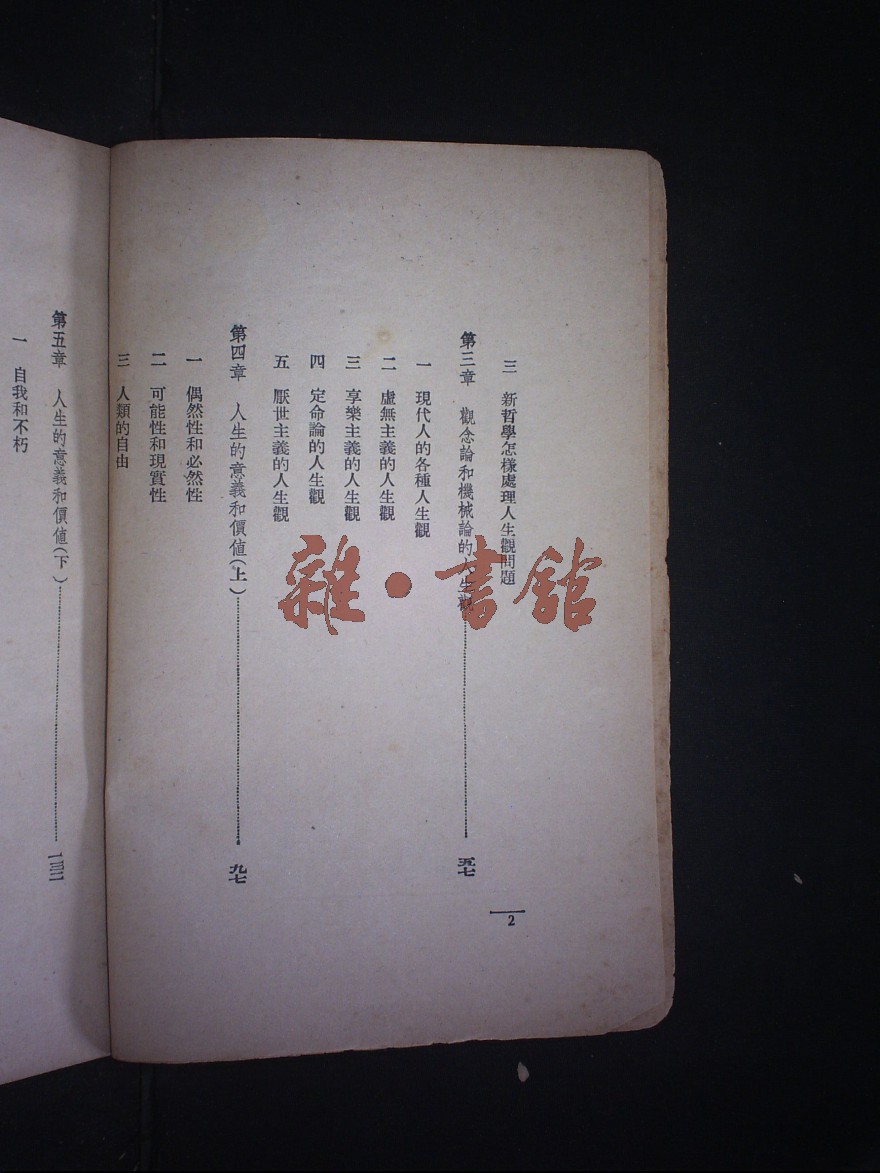 三　新哲學怎樣處理人生觀問題
第三章　觀念論和機械論的人生觀………五七
一　現代人的各種人生觀
二　虛無主義的人生觀
三　享樂主義的人生觀
四　定命論的人生觀
五　厭世主義的人生觀
第四章　人生的意義和價值(上)………九七
一　偶然性和必然性
二　可能性和現實性
三　人類的自由
2
第五章　人生的意義和價值(下)………一三二
一　自我和不朽
雜·書館